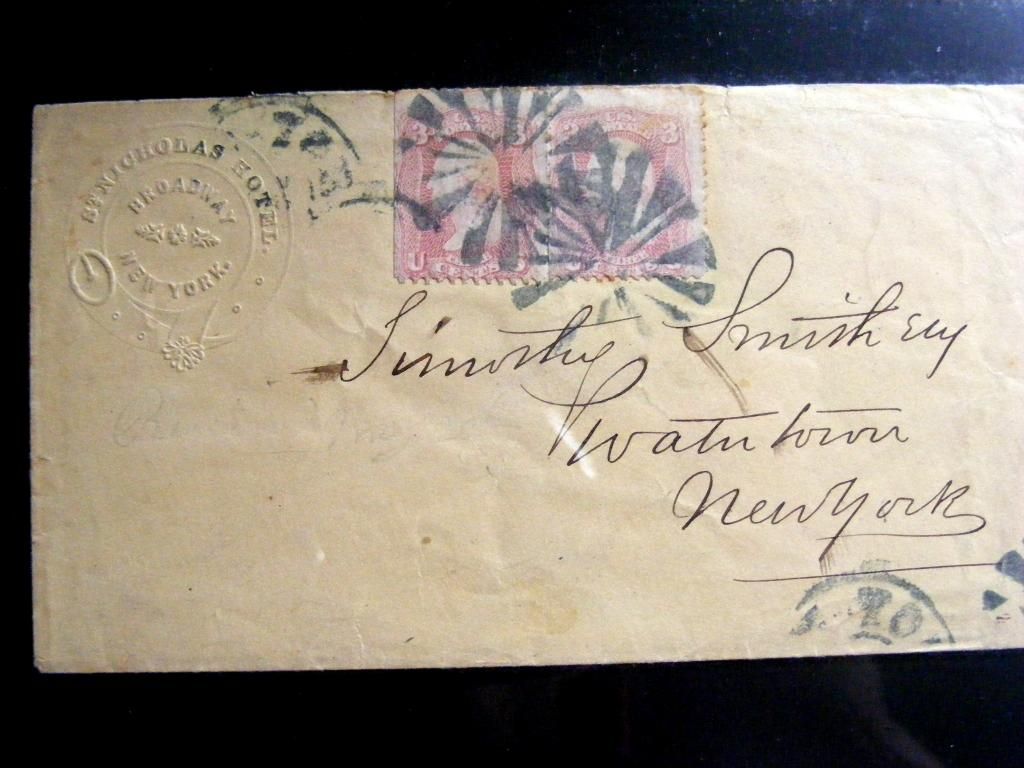 ST. NICHOLAS HOTEL.
BROADWAY
NEW YORK.
3
3 3
U
Timothy Smith Esq
Watertown
New York